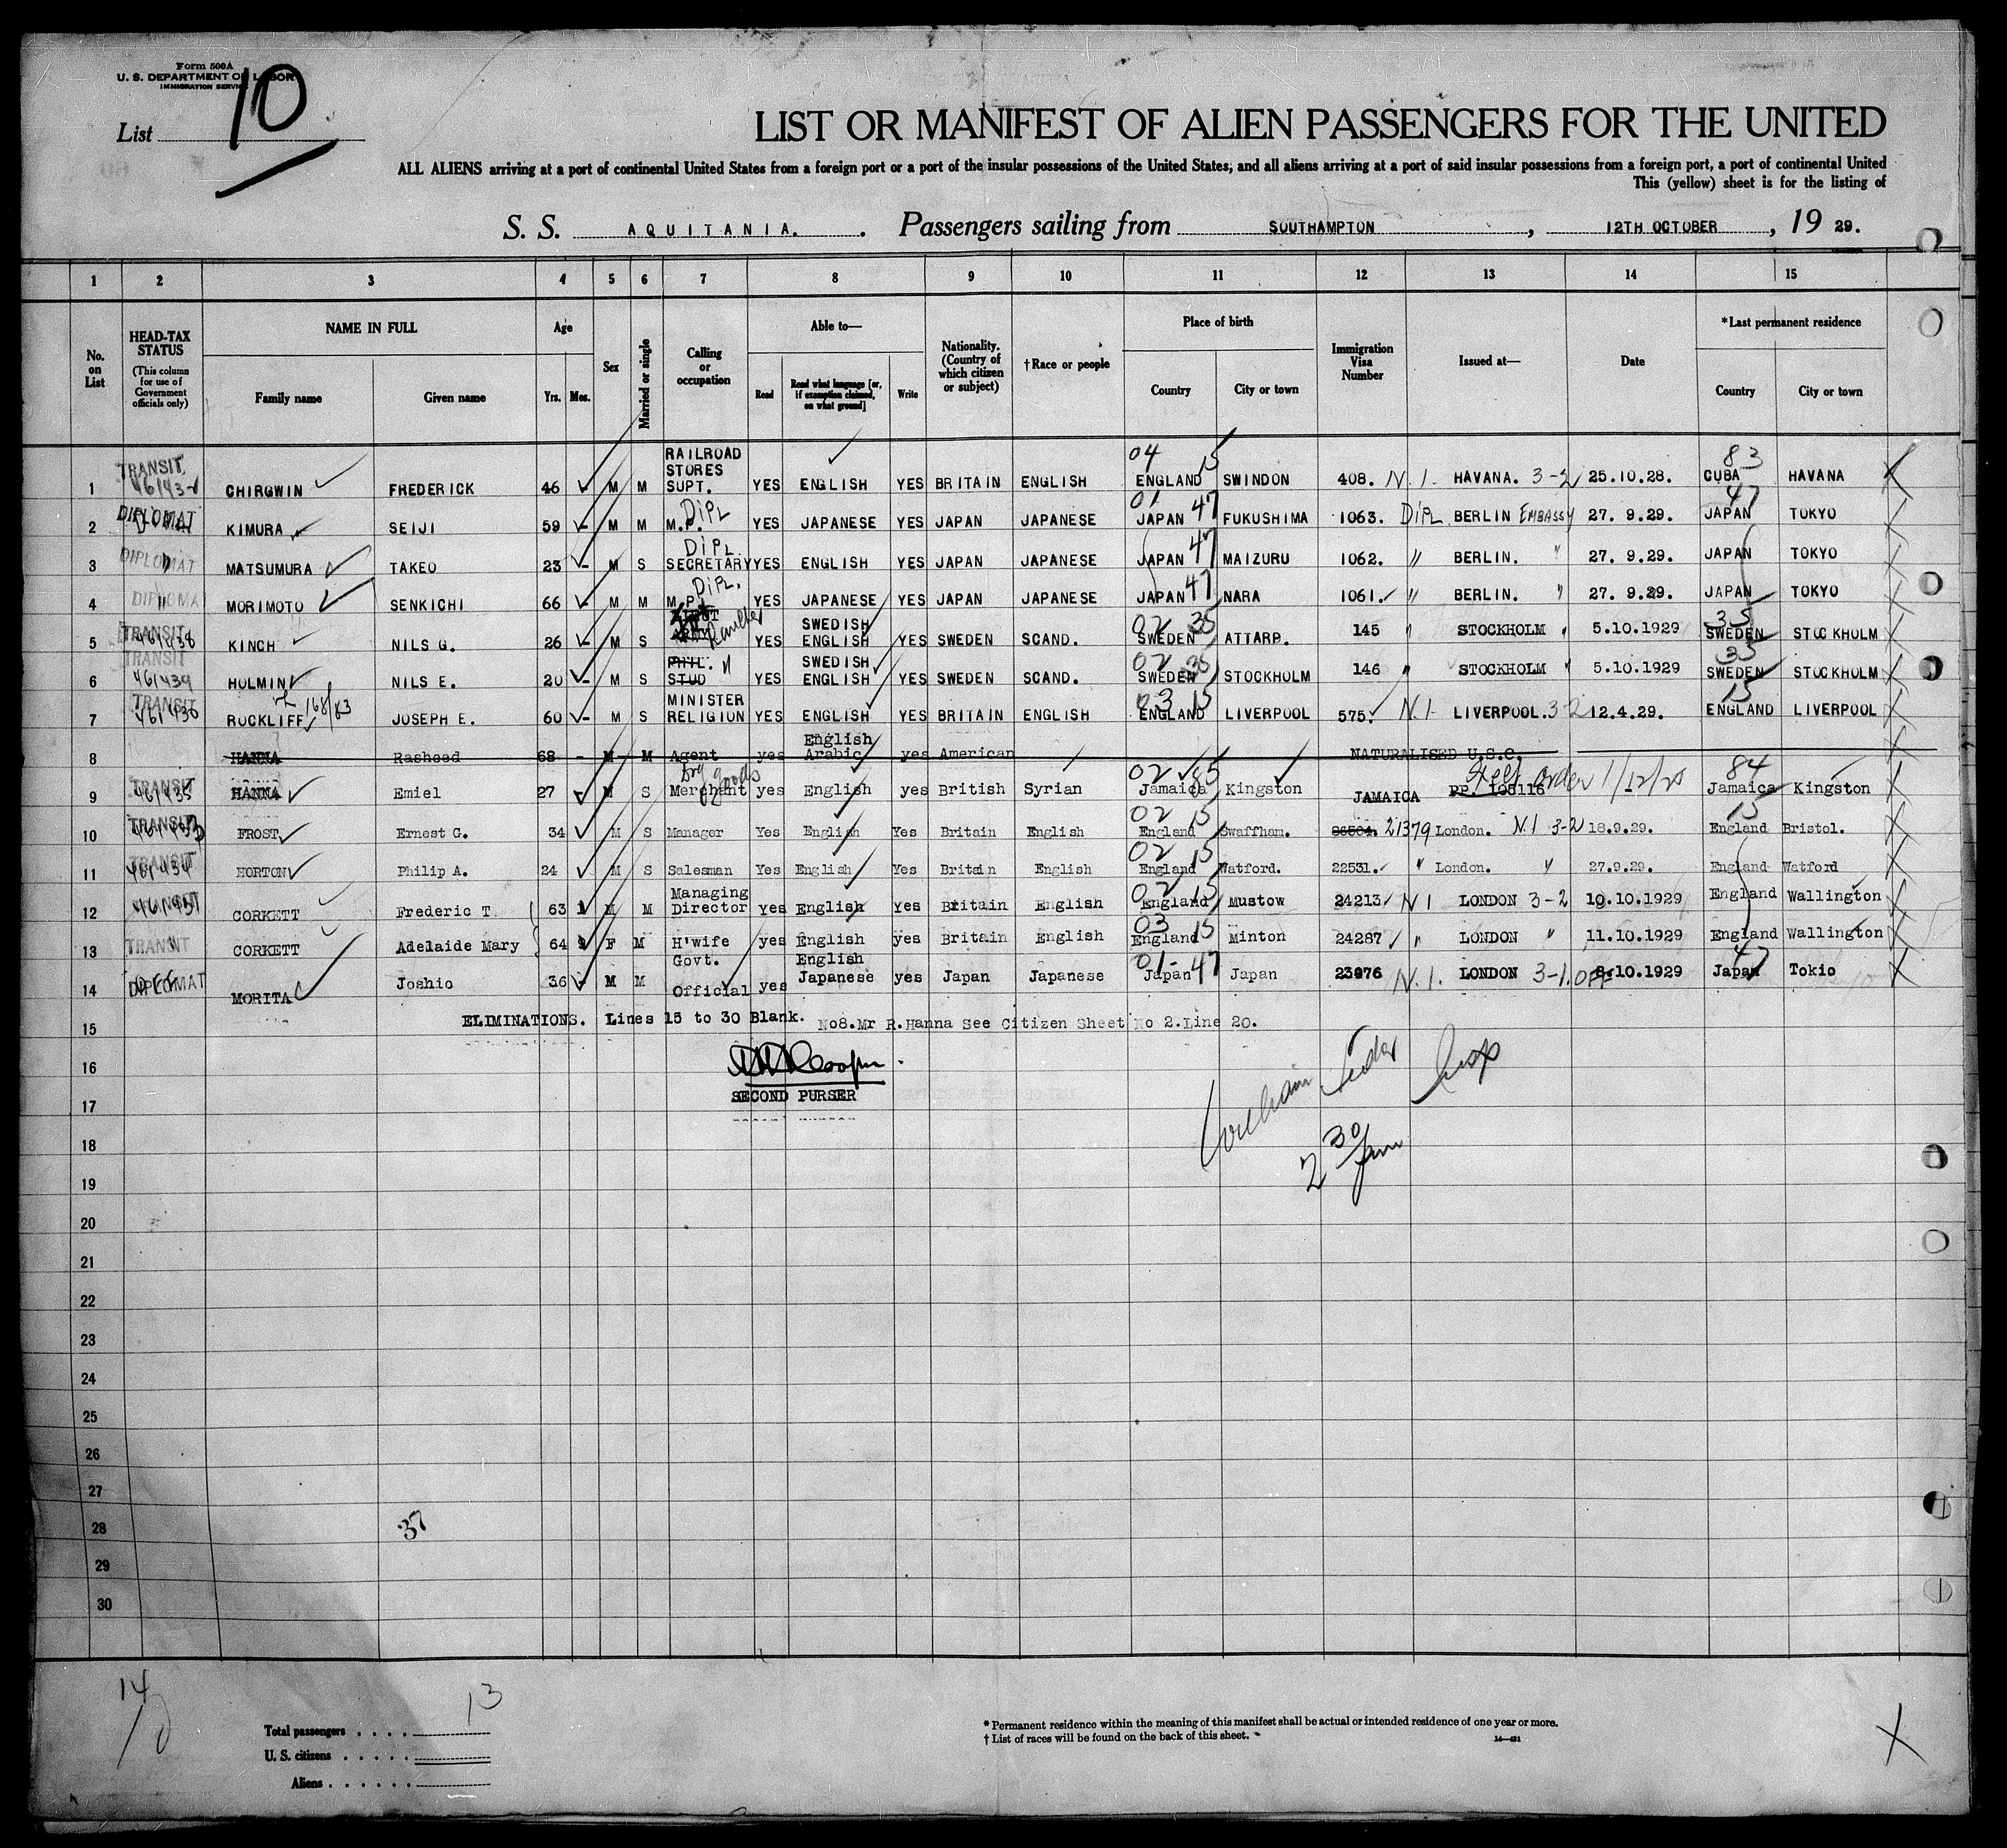 Form 500A
U. S. DEPARTMENT OF LABOR
IMMIGRATION SERVICE
List 10
LIST OR MANIFEST OF ALIEN PASSENGERS FOR THE UNITED
ALL ALIENS arriving at a port of continental United States from a foreign port or a port of the insular possessions of the United States, and all aliens arriving at a port of said insular possessions from a foreign port, a port of continental United
This (yellow) sheet is for the listing of
S. S. AQUITANIA. Passengers sailing from SOUTHAMPTON, 12TH OCTOBER, 19 29.
1 2 3 4 5 6 7 8 9 10 11 12 13 14 15
No. on List
HEAD-TAX STATUS (This column for use of Government officials only)
NAME IN FULL
Family name Given name
Age
Yrs. Mos.
Sex
Married or single
Calling or occupation
Able to—
Read Read what language [or, if exemption claimed, on what ground] Write
Nationality. (Country of which citizen or subject)
†Race or people
Place of birth
Country City or town
Immigration Visa Number
Issued at—
Date
*Last permanent residence
Country City or town
1 TRANSIT CHIRGWIN FREDERICK 46 M M RAILROAD STORES SUPT. YES ENGLISH YES BRITAIN ENGLISH 04 15 ENGLAND SWINDON 408. N.I. HAVANA. 3-2 25.10.28. 83 CUBA HAVANA
2 DIPLOMAT KIMURA SEIJI 59 - M M M.P. DIPL YES JAPANESE YES JAPAN JAPANESE 01 JAPAN 47 FUKUSHIMA 1063. DIPL BERLIN EMBASSY 27. 9.29. 47 JAPAN TOKYO
3 DIPLOMAT " MATSUMURA TAKEO 23 - M S DIPL. SECRETARY YES ENGLISH YES JAPAN JAPANESE JAPAN 47 MAIZURU 1062. " BERLIN. " 27. 9.29. JAPAN TOKYO
4 DIPLOMA " MORIMOTO SENKICHI 66 - M M M.P. DIPL. YES JAPANESE YES JAPAN JAPANESE JAPAN 47 NARA 1061. " BERLIN. " 27. 9.29. JAPAN TOKYO
5 TRANSIT 461438 KINCH NILS G. 26 - M S YES SWEDISH ENGLISH YES SWEDEN SCAND. 02 35 SWEDEN ATTARP. 145 " STOCKHOLM " 5.10.1929 35 SWEDEN STOCKHOLM
6 TRANSIT 461439 HOLMIN NILS E. 20 - M S PHIL. STUD " YES SWEDISH ENGLISH YES SWEDEN SCAND. 02 35 SWEDEN STOCKHOLM 146 " STOCKHOLM " 5.10.1929 35 SWEDEN STOCKHOLM
7 TRANSIT 461436 ROCKLIFF 168/83 JOSEPH E. 60 - M S MINISTER RELIGION YES ENGLISH YES BRITAIN ENGLISH 03 15 ENGLAND LIVERPOOL 575. N.I. LIVERPOOL. 3-2 12.4.29. 15 ENGLAND LIVERPOOL
8 HANNA Rasheed 68 - M M Agent yes English Arabic yes American NATURALISED U.S.C.
9 TRANSIT 461435 HANNA Emiel 27 - M S Dry goods Merchant yes English yes British Syrian 02 85 Jamaica Kingston JAMAICA PP. 105116 Order 1/12/25 84 Jamaica Kingston
10 TRANSIT FROST Ernest G. 34 M S Manager Yes English Yes Britain English 02 15 England Swaffham. 21379 London. N.I 3-2 18.9.29. 15 England Bristol.
11 TRANSIT 461434 HORTON Philip A. 24 M S Salesman Yes English Yes Britain English 02 15 England Watford. 22531. " London. " 27.9.29. England Watford
12 461437 CORKETT Frederic T 63 M M Managing Director Yes English Yes Britain English 02 15 England Mustow 24213 N I LONDON 3-2 10.10.1929 England Wallington
13 TRANSIT " CORKETT Adelaide Mary 64 F M H'wife yes English yes Britain English 03 15 England Minton 24287 " LONDON " 11.10.1929 England Wallington
14 DIPLOMAT MORITA Joshio 36 - M M Govt. Official yes English Japanese yes Japan Japanese 01- 47 Japan Japan 23976 N.I. LONDON 3-1.OFF 8.10.1929 47 Japan Tokio
15 ELIMINATIONS. Lines 15 to 30 Blank. No8.Mr R.Hanna See Citizen Sheet No 2.Line 20.
16
SECOND PURSER
17
2 30 pm
18
19
20
21
22
23
24
25
26
27
28 37
29
30
14
10
Total passengers . . . . 13
U. S. citizens . . . . .
Aliens . . . . . .
* Permanent residence within the meaning of this manifest shall be actual or intended residence of one year or more.
† List of races will be found on the back of this sheet.